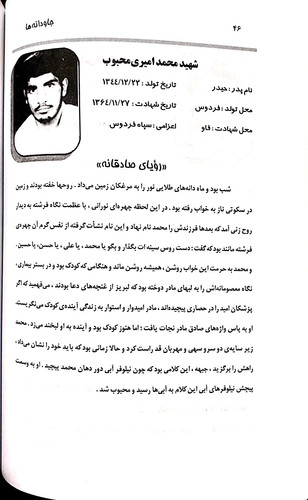 ۴۶
جاودانه‌ها
شهید محمد امیری محبوب
نام پدر : حیدر
تاریخ تولد : ۱۳۴۴/۱۲/۲۲
محل تولد : فردوس
تاریخ شهادت : ۱۳۶۴/۱۱/۲۷
محل شهادت : فاو
اعزامی : سپاه فردوس
«رؤیای صادقانه»
شب بود و ماه دانه‌های طلایی نور را به مرغکان زمین می‌داد . روحها خفته بودند و زمین
در سکوتی ناز به خواب رفته بود . در این لحظه چهره‌ای نورانی ، با عظمت نگاه فرشته به دیدار
روح زنی آمد که بعدها فرزندش را محمد نام نهاد و این نام نشأت گرفته از نفس گرم آن چهره‌ی
فرشته مانند بود که گفت : دست روس سینه ات بگذار و بگو یا محمد ، یا علی ، یا حسن ، یا حسین .
و محمد به حرمت این خواب روشن ، همیشه روشن ماند و هنگامی که کودک بود و در بستر بیماری ،
نگاه معصومانه‌اش به لبهای مادر دوخته بود که لبریز از غنچه‌های دعا بودند ، می‌فهمید که اگر
پزشکان امید را در حصاری پیچیده‌اند ، مادر امیدوار و استوار به زندگی آینده‌ی کودک می‌نگریست .
او به پاس واژه‌های صادق مادر نجات یافت ؛ اما هنوز کودک بود و آینده به او لبخند می‌زد . محمد
زیر سایه‌ی دو سرو سهی و مهربان قد راست کرد و حالا زمانی بود که باید خود را نشان می‌داد ،
راهش را برگزید ، جبهه ، این کلامی بود که چون نیلوفر آبی دور دهان محمد پیچید . او به وسعت
پیچش نیلوفرهای آبی این کلام به آبی‌ها رسید و محبوب شد .